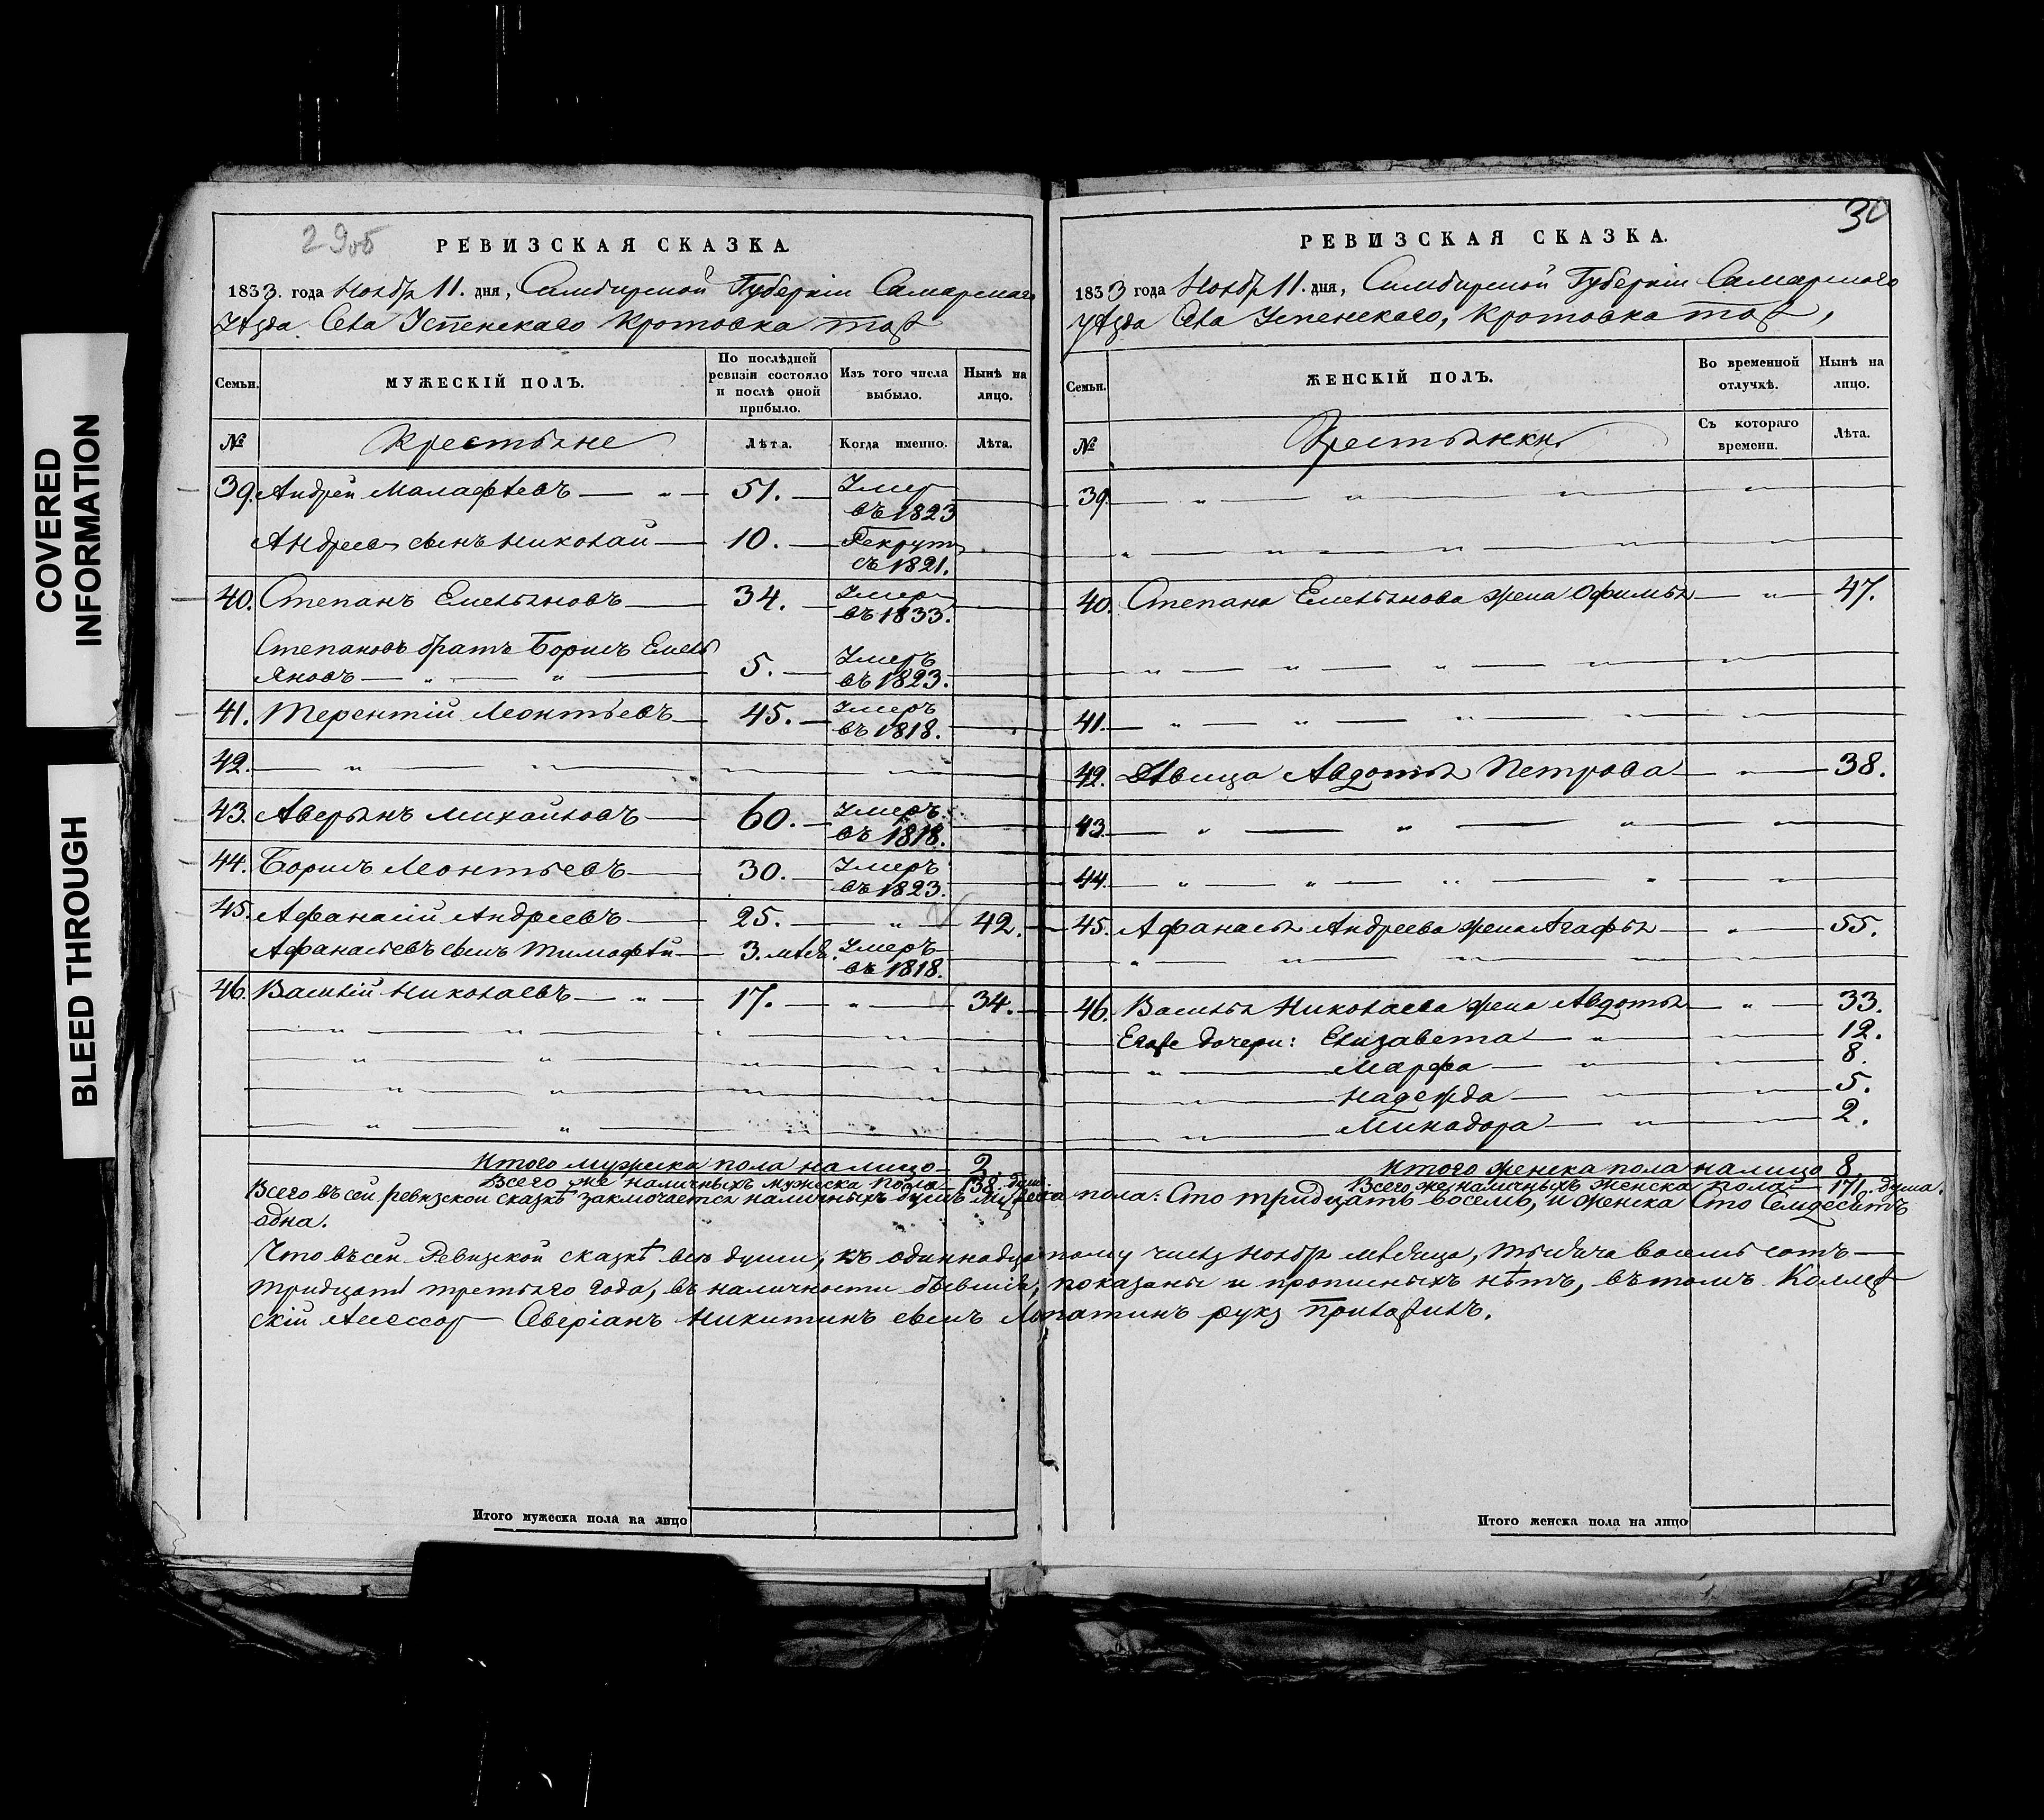 COVERED
INFORMATION
BLEED THROUGH
29об
РЕВИЗСКАЯ СКАЗКА.
1833. года Ноябр 11. дня, Симбирской Губерніи Самарского
уѣзда Села Успенскаго Кротовка тож
Семьи.
МУЖЕСКІЙ ПОЛЪ.
По послѣдней ревизіи состояло и послѣ оной прибыло.
Изъ того числа выбыло.
Нынѣ на лицо.
№
Крестьяне
Лѣта.
Когда именно.
Лѣта.
39. Андрей Малафѣевъ — 51. — Умер въ 1823
Андреев сынъ Николай — 10. — Рекрут съ 1821.
40. Степанъ Емельяновъ — 34. — Умер въ 1833.
Степановъ братъ Борисъ Емель
яновъ — 5. — Умеръ въ 1823.
41. Терентій Леонтьевъ — 45. — Умеръ въ 1818.
42.
43. Аверьянъ Михайловъ — 60. — Умеръ въ 1818.
44. Борисъ Леонтьевъ — 30. — Умеръ въ 1823.
45. Афанасій Андреевъ — 25. — „ — 42.
Афанасьевъ сынъ Тимофѣй — 3. мѣс. Умеръ въ 1818.
46. Василій Николаевъ — „ — 17. — „ — 34.
Итого мужеска пола налицо — 2
Всего же наличныхъ мужеска пола — 138. душ.
30
РЕВИЗСКАЯ СКАЗКА.
1833 года Ноябр 11. дня, Симбирской Губерніи Самарского
уѣзда Села Успенскаго, Кротовка тож,
Семьи.
ЖЕНСКІЙ ПОЛЪ.
Во временной отлучкѣ.
Нынѣ на лицо.
№
Крестьянки
Съ котораго времени.
Лѣта.
39.
40. Степана Емельянова жена Офимья — „ — 47.
41.
42. Дѣвица Авдотья Петрова — „ — 38.
43.
44.
45. Афанасья Андреева жена Агафья — „ — 55.
46. Василья Николаева жена Авдотья — „ — 33.
Егоже дочери: Елизавета — „ — 12.
Марфа — „ — 8.
Надежда — „ — 5.
Минадора — „ — 2.
Итого женска пола налицо 8
Всего же наличныхъ женска пола — 171. душа.
Всего въ сей ревизской сказкѣ заключается наличныхъ душъ мужеска пола: Сто тридцать восемь, и женска Сто Семдесятъ
одна.
Что въ сей Ревизской сказкѣ всѣ души, къ одиннадцатому числу Ноябр мѣсяца, тысяча восемь сотъ
тридцать третьяго года, въ наличности бывшія, показаны и прописныхъ нѣтъ, въ томъ Коллеж
скій Асессор Аверіанъ Никитинъ сынъ Лопатинъ руку приложилъ.
Итого мужеска пола на лицо
Итого женска пола на лицо